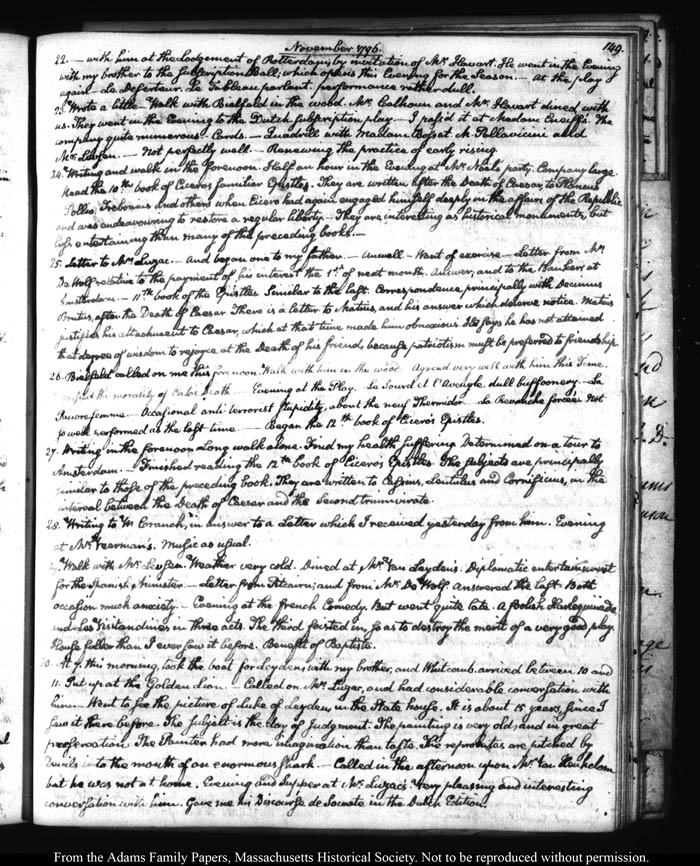 November 1796.
149.
22. — with him at the Lodgement of Rotterdam; by invitation of Mr. Hawart. He went in the Evening
with my brother to the Subscription Ball; which opens this Evening for the Season. — At the play
again — Le Deserteur. Le Tableau parlant. performance rather dull.
23. Wrote a little. Walk with Bielfeld in the wood. Mr. Calhoun and Mr. Hawart dined with
us. They went in the Evening to the Dutch subscription play. — I pass'd it at Madam The
company quite numerous. Cards. — Quadrill with Madame Bosset M. Pallavicini and
Mr. — Not perfectly well. — Renewing the practice of early rising.
24. Writing and walk in the forenoon. Half an hour in the Evening at Mr. Noel's party. Company large.
Read the 10th. book of Cicero's familiar Epistles. They are written after the Death of Caesar, to Plancus
Pollio, Trebonius and others when Cicero had again engaged himself deeply in the affairs of the Republic
and was endeavouring to restore a regular liberty. — They are interesting as historical monuments, but
less entertaining than many of the preceding books. —
25. Letter to Mr. Luzac. — And began one to my father. — Unwell — Want of exercise — Letter from Mr.
De Wolf relative to the payment of his interest the 1st. of next month. Answer, and to the Bankers at
Amsterdam. — 11th. book of the Epistles. Similar to the last. Correspondence principally with Decimus
Brutus, after the Death of Caesar. There is a letter to Matius, and his answer which deserve notice. Matius
justifies his attachment to Caesar, which at that time made him obnoxious. He says he has not attained
that degree of wisdom to rejoyce at the Death of his friend, because patriotism must be preferred to friendship.
26. Bielfeld called on me this forenoon. Walk with him in the wood. Agreed very well with him this time.
the morality of Cato's Death. Evening at the Play. Le Sourd et l'Aveugle, dull buffoonery. — La
Pauvre femme. — Occasional anti-terrorist stupidity, about the new Thermidor. — La Revanche forcée. Not
so well performed as the last time. — Began the 12th. book of Cicero's Epistles.
27. Writing in the forenoon. Long walk alone. Find my health suffering. Determined on a tour to
Amsterdam. — Finished reading the 12th. book of Cicero's Epistles. The subjects are principally
similar to those of the preceding book. They are written to Cassius, Lentulus and Cornificius, in the
interval between the Death of Caesar and the Second triumvirate.
28. Writing to W. Cranch, in answer to a Letter which I received yesterday from him. Evening
at Mr. Veerman's. Music as usual.
29. Walk with Mr. Weather very cold. Dined at Mr. Van Leyden's. Diplomatic entertainment
for the Spanish Minister. — Letter from Pitcairn; and from Mr. De Wolf. Answered the last. Both
occasion much anxiety. — Evening at the french Comedy. But went quite late. A foolish Harlequinade
and Les Visitandines in three acts. The third foisted in, so as to destroy the merit of a very good play.
House fuller than I ever saw it before. Benefit of Baptiste.
30. At 7. this morning, took the boat for Leyden with my brother, and Whitcomb. arrived between 10 and
11. Put up at the Golden Lion. — Called on Mr. Luzac, and had considerable conversation with
him. — Went to see the picture of Luke of Leyden, in the State house. It is about 15 years, since I
saw it there before. The subject is the day of Judgment. The painting is very old, and in great
preservation. The Painter had more imagination than taste. The reprobates are pitched by
Devils into the mouth of an enormous shark. — Called in the afternoon upon Mr. Van
but he was not at home. Evening and Supper at Mr. Luzac's. Very pleasing and interesting
conversation with him. Gave me his Discourse de Socrate in the Dutch Edition.
From the Adams Family Papers, Massachusetts Historical Society. Not to be reproduced without permission.